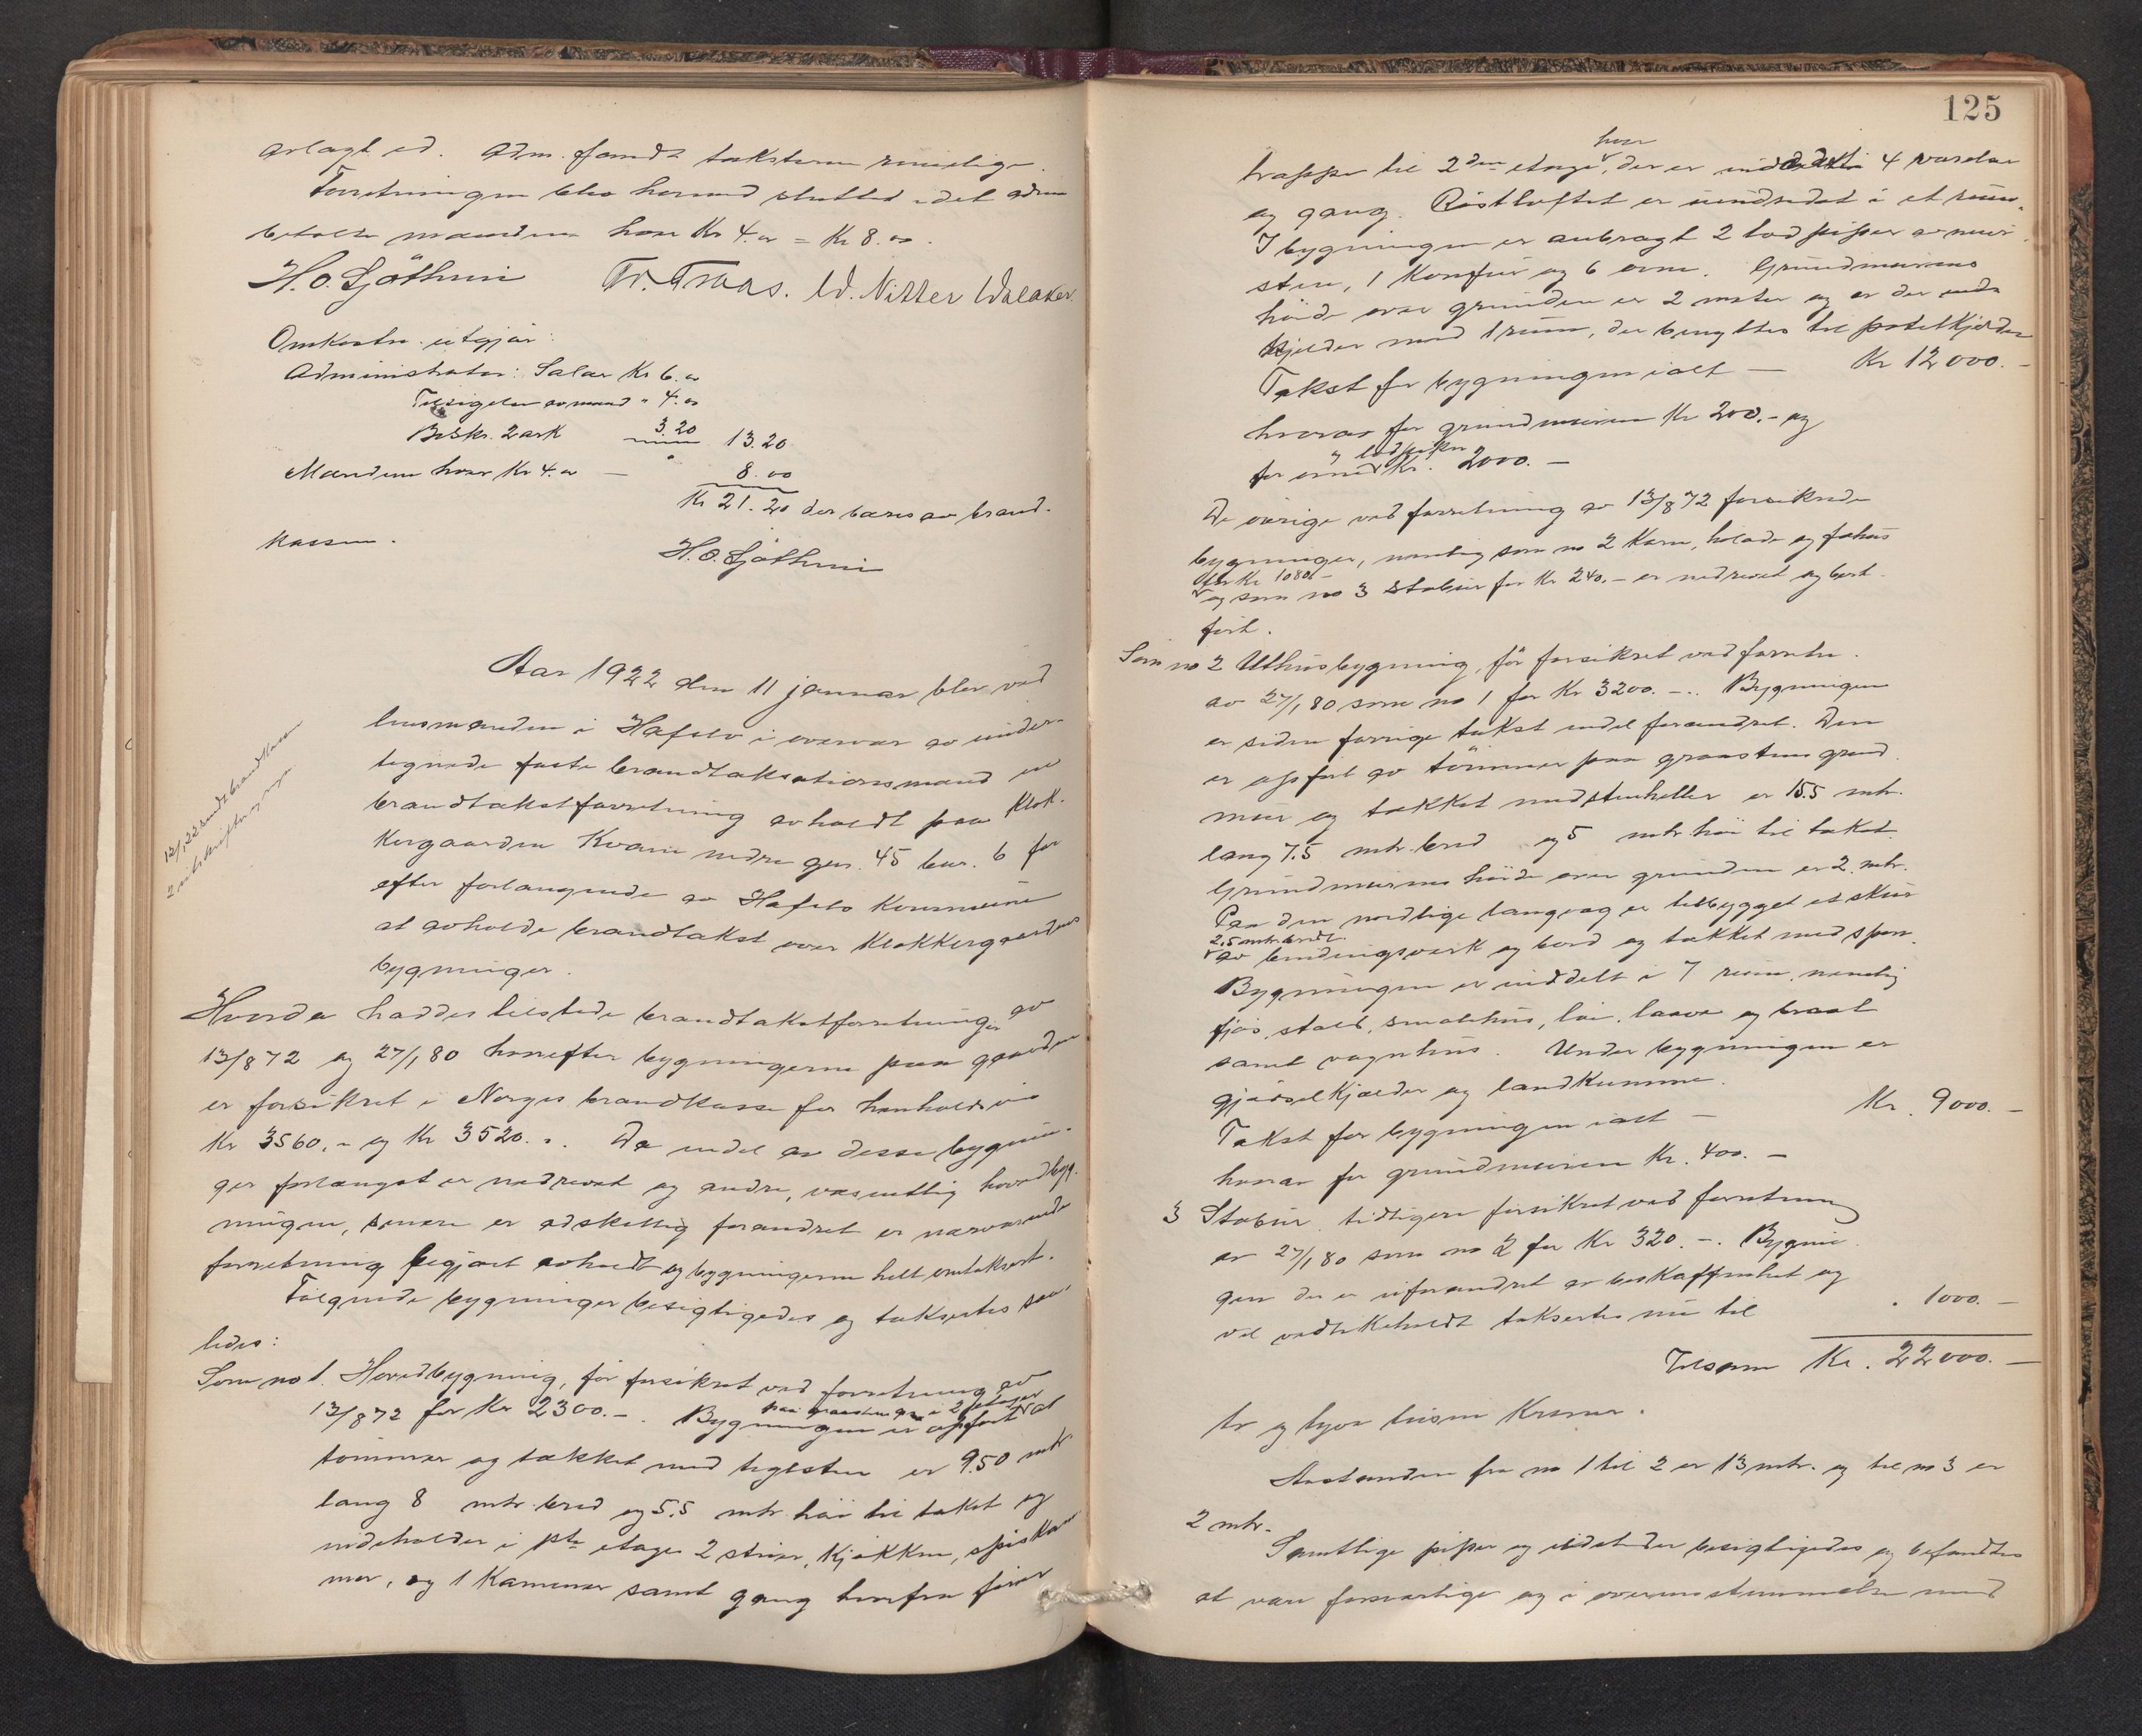 avlagt ed. Adm. fandt taksterne rimelige.
Forretningen blev hermed sluttet idet adm
betalte mændene hver Kr 4.00 = Kr 8.00.
H. O. Sjøthun Tr. Traas. W. Nitter Walaker.
Omkostn. utgjør:
Administrator: Salær Kr 6.00
Tilsigelse av mænd " 4.00
Beskr. 2 ark 3.20 13.20
Mændene hver Kr 4.00 — 8.00
Kr 21.20 der bæres av brand-
kassen.
H. O. Sjøthun
Aar 1922 den 11 januar blev ved
lensmanden i Hafslo i overvær av under-
tegnede faste brandtakstationsmænd en
brandtakstforretning avholdt paa Klok-
kergaarden Kvam nedre gnr. 45 bnr. 6 for
efter forlangende av Hafslo Kommune
at avholde brandtakst over Klokkergaardens
bygninger.
12/1 22 sendt brandkassen
2 utskrifter
Hvorda haddes tilstede brandtakstforretninger av
13/8 72 og 27/1 80 hvorefter bygningerne paa gaarden
er forsikret i Norges brandkasse for henholdsvis
Kr 3560.- og Kr 3520.-. Da endel av disse bygnin-
ger forlængst er nedrevet og andre, væsentlig hovedbyg-
ningen, senere er adskillig forandret er nærværende
forretning begjært avholdt og bygningerne helt omtaksert.
Følgende bygninger besigtigedes og taksertes saa-
ledes:
Som no 1. Hovedbygning, før forsikret ved forretning av
13/8 72 for Kr 2300.-. Bygningen er opført paa graastensgr. i 2 etager av
tømmer og tækket med teglsten er 9.50 mtr
lang 8 mtr. bred og 5.5 mtr. høi til taket og
indeholder i 1ste etage 2 stuer, kjøkken, spiskam-
mer, og 1 Kammer samt gang hvorfra fører
125
trappe til 2den etage, hvor der er inddelt i 4 værelser
og gang. Røstloftet er uindredet i et rum.
I bygningen er anbragt 2 lod piper av mur-
sten, 1 Komfur og 6 ovne. Grundmurens
høide over grunden er 2 meter og er der under
kjelder med 1 rum, der benyttes til potetkjelder
Takst for bygningen ialt — Kr 12000.-
hvorav for grundmuren Kr 200.- og
for ovne og lodpiper Kr. 2000.—
De øvrige ved forretning av 13/8 72 forsikrede
bygninger, nemlig som no 2 Korn, holade og fæhus
for Kr 1080.-
og som no 3 Stabur for Kr 240.- er nedrevet og bort-
ført.
Som no 2 Uthusbygning, før forsikret ved forretn.
av 27/1 80 som no 1 for Kr 3200.-. Bygningen
er siden forrige takst endel forandret. Den
er opført av tømmer paa graastens grund-
mur og tækket med stenheller er 15.5 mtr.
lang 7.5 mtr. bred og 5 mtr. høi til taket.
Grundmurens høide over grunden er 2 mtr.
Paa den nordlige langvæg er tilbygget et skur
2.5 mtr. bredt
av bindingsverk og bord og tækket med spon.
Bygningen er inddelt i 7 rum nemlig
fjøs, stald, smalehus, lo, laave og
samt vognhus. Under bygningen er
gjødselkjælder og landkumme.
Takst for bygningen ialt — Kr. 9000.—
hvorav for grundmuren Kr. 400.—
3 Stabur tidligere forsikret ved forretning
av 27/1 80 som no 2 for Kr 320.-. Bygnin-
gen der er uforandret av beskaffenhet og
vel vedlikeholdt taksertes nu til " 1000.—
Tilsam Kr. 22000.—
to og tyve tusen Kroner.
Avstanden fra no 1 til 2 er 13 mtr. og til no 3 er
2 mtr.
Samtlige piper og ildsteder besigtigedes og befandtes
at være forsvarlige og i overensstemmelse med